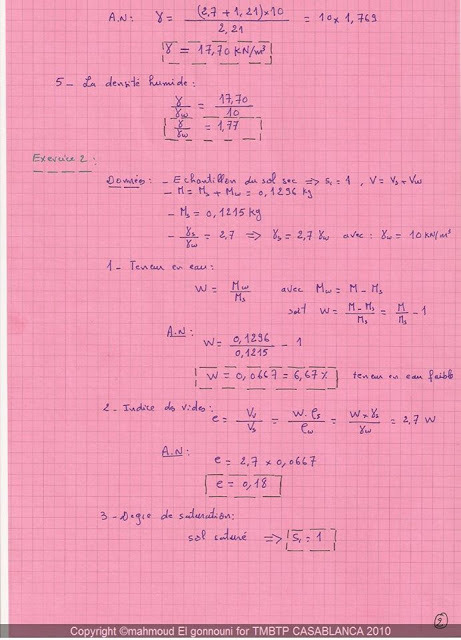 A.N: γ = (2,7 + 1,21) × 10 / 2,21 = 10 × 1,769
γ = 17,70 KN/m³
5 - La densité humide:
γ/γw = 17,70/10
γ/γw = 1,77
Exercice 2:
Données: - Echantillon du sol sec => Sr = 1 , V = Vs + Vw
- M = Ms + Mw = 0,1296 kg
- Ms = 0,1215 kg
- γs/γw = 2,7 => γs = 2,7 γw avec: γw = 10 KN/m³
1 - Teneur en eau:
W = Mw/Ms avec Mw = M - Ms
soit W = (M - Ms)/Ms = M/Ms - 1
A.N: W = 0,1296/0,1215 - 1
W = 0,0667 = 6,67 % teneur en eau faible
2 - Indice des vides:
e = Vv/Vs = W.ρs/ρw = W × γs/γw = 2,7 W
A.N:
e = 2,7 × 0,0667
e = 0,18
3 - Degre de saturation:
sol saturé => Sr = 1
2
Copyright ©mahmoud El gonnouni for TMBTP CASABLANCA 2010